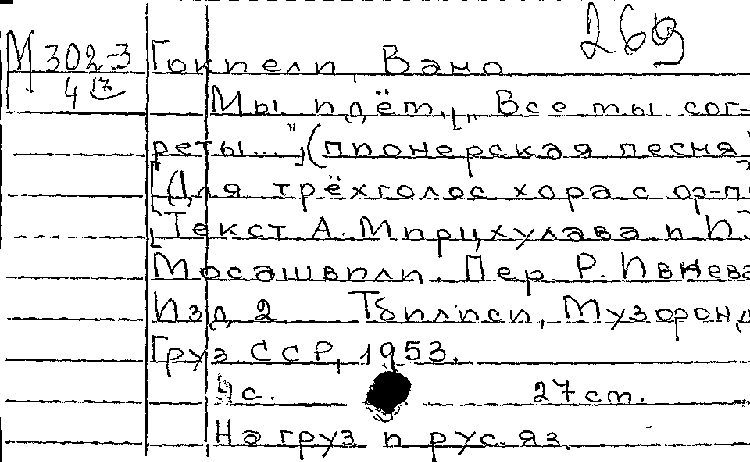 269
М 302-3 Гокиели, Вано
4 Мы идём. „Все мы сог-
реты..." (пионерская песня)
[Для трёхголос хора с ор-п
[Текст А. Мирцхулава и И.
Мосашвили. Пер Р. Ивнева
Изд 2 Тбилиси, Музфонд
Груз ССР, 1953.
4с. 27 cm.
На груз и рус. яз.